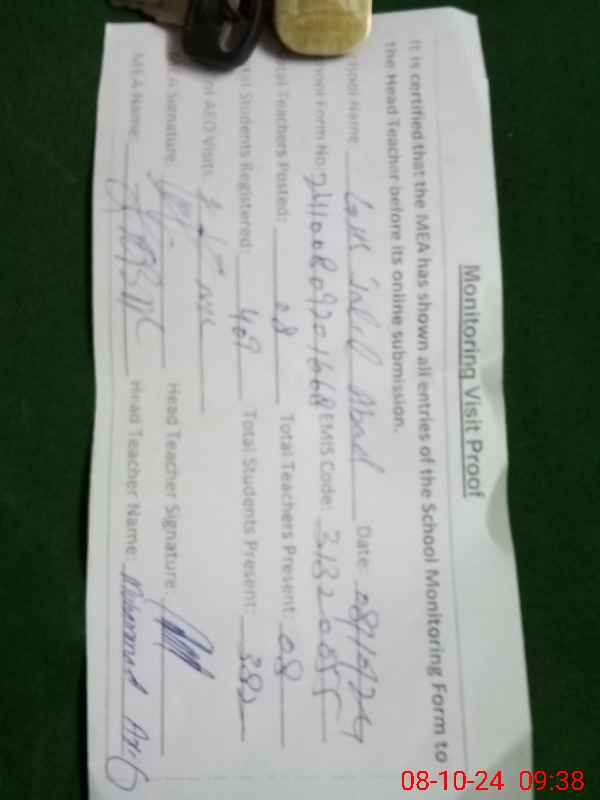 Monitoring Visit Proof
It is certified that the MEA has shown all entries of the School Monitoring Form to
the Head Teacher before its online submission.
hool Name Abad Date: 08/10/24
ool Form No: EMIS Code: 31320085
al Teachers Posted: 08 Total Teachers Present: 08
al Students Registered: 409 Total Students Present: 382
of AEO Visits:
A Signature Head Teacher Signature:
MEA Name: Head Teacher Name: Muhammad
08-10-24 09:38